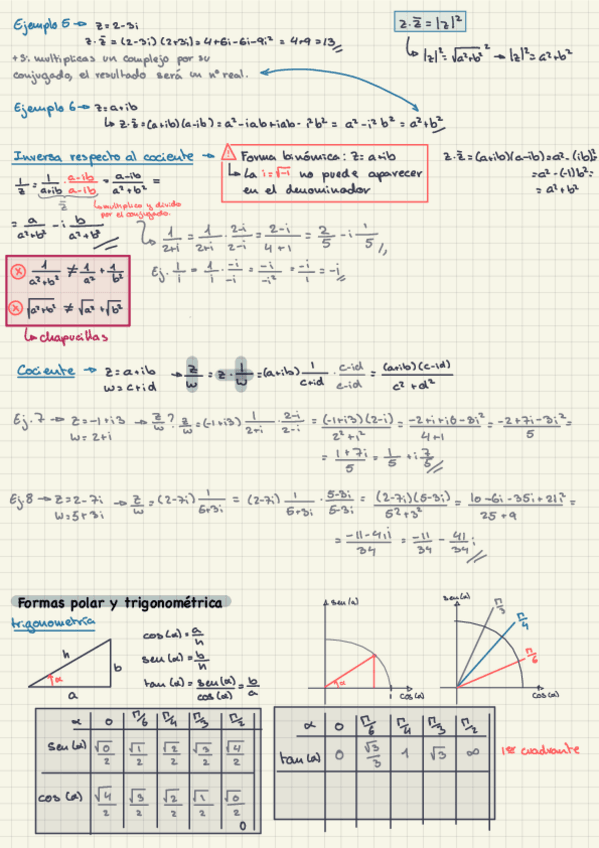 Ejemplo 5 → z=2-3i
z·z̄ = |z|²
z·z̄ = (2-3i)(2+3i) = 4+6i-6i-9i² = 4+9 = 13
↳ |z|² = √a²+b² ² → |z|² = a²+b²
+ Si multiplicas un complejo por su
conjugado, el resultado será un nº real.
Ejemplo 6 → z=a+ib
↳ z·z̄ = (a+ib)(a-ib) = a²-iab+iab-i²b² = a²-i²b² = a²+b²
Inversa respecto al cociente → ⚠ Forma binómica: z=a+ib
↳ La i=√-1 no puede aparecer
en el denominador
z·z̄ = (a+ib)(a-ib) = a²-(ib)²
= a²-(-1)b² =
= a²+b²
1/z = 1/a+ib · a-ib/a-ib = a-ib/a²+b² =
z̄
↳ multiplico y divido
por el conjugado.
= a/a²+b² - i b/a²+b²
↳ 1/2+i = 1/2+i · 2-i/2-i = 2-i/4+1 = 2/5 - i 1/5
Ej. 1/i = 1/i · -i/-i = -i/-i² = -i/1 = -i
ⓧ 1/a²+b² ≠ 1/a² + 1/b²
ⓧ √a²+b² ≠ √a² + √b²
↳ chapucillas
Cociente → z=a+ib
w=c+id
→ z/w = z · 1/w = (a+ib) 1/c+id · c-id/c-id = (a+ib)(c-id)/c²+d²
Ej. 7 → z=-1+i3
w=2+i
→ z/w? z/w = (-1+i3) 1/2+i · 2-i/2-i = (-1+i3)(2-i)/2²+1² = -2+i+i6-3i²/4+1 = -2+7i-3i²/5 =
= 1+7i/5 = 1/5 + i 7/5
Ej. 8 → z=2-7i
w=5+3i
→ z/w = (2-7i) 1/5+3i = (2-7i) 1/5+3i · 5-3i/5-3i = (2-7i)(5-3i)/5²+3² = 10-6i-35i+21i²/25+9 =
= -11-41i/34 = -11/34 - 41/34 i
Formas polar y trigonométrica
trigonometría
h
b
α
a
cos(α) = a/h
sen(α) = b/h
tan(α) = sen(α)/cos(α) = b/a
sen(α)
α
1
cos(α)
sen(α)
π/3
π/4
π/6
cos(α)
α 0 π/6 π/4 π/3 π/2
sen(α) √0/2 √1/2 √2/2 √3/2 √4/2
cos(α) √4/2 √3/2 √2/2 √1/2 √0/2
0
α 0 π/6 π/4 π/3 π/2
tan(α) 0 √3/3 1 √3 ∞
1er cuadrante